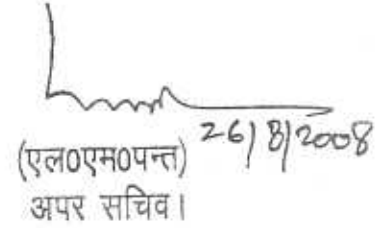 26/8/2008
(एल0एम0पन्त)
अपर सचिव।